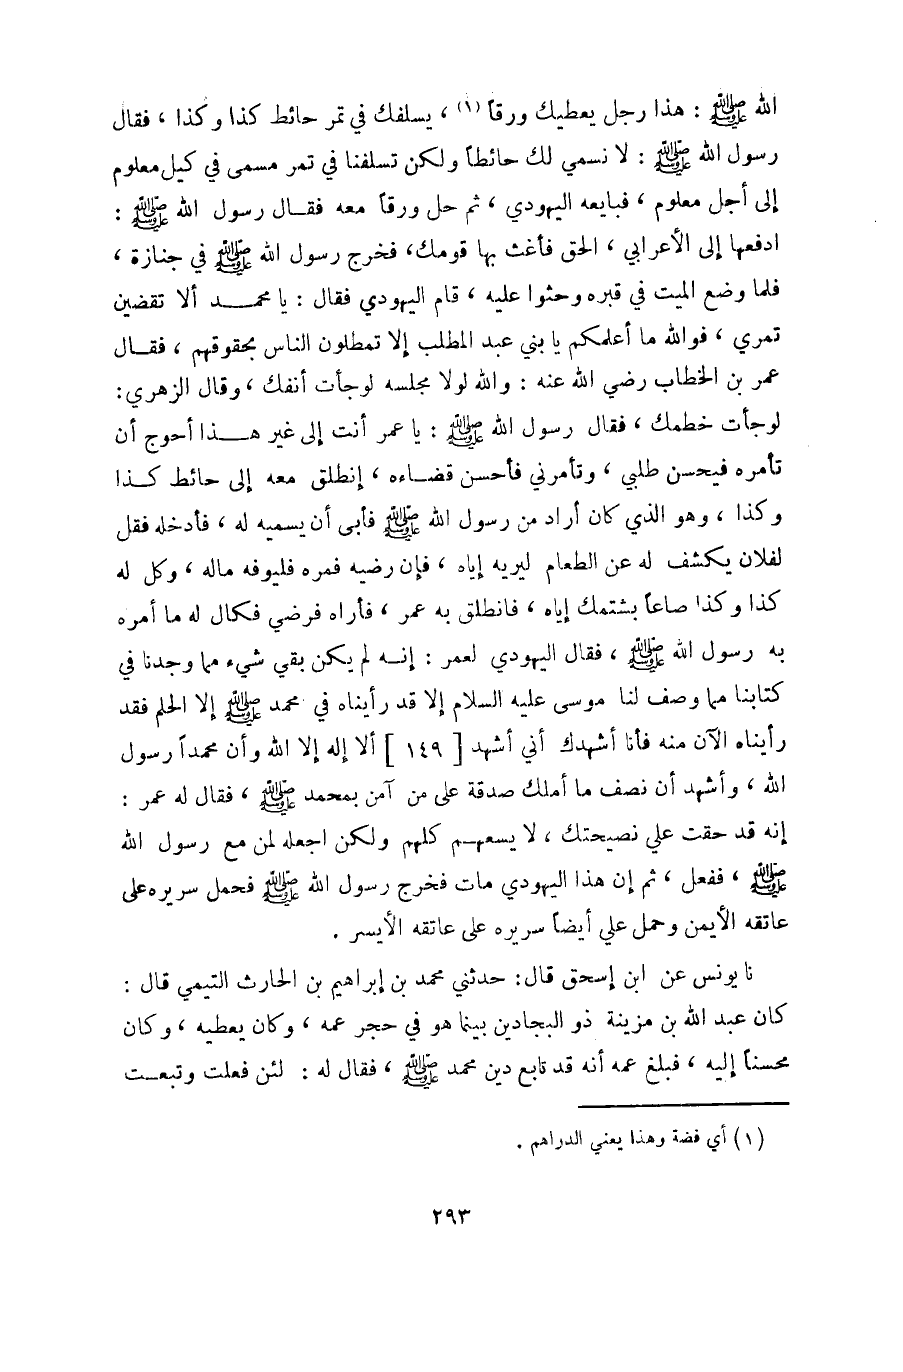 الله ﷺ : هذا رجل يعطيك ورقاً (١) ، يسلفك في تمر حائط كذا وكذا ، فقال
رسول الله ﷺ : لا نسمي لك حائطاً ولكن تسلفنا في تمر مسمى في كيل معلوم
إلى أجل معلوم ، فبايعه اليهودي ، ثم حل ورقاً معه فقال رسول الله ﷺ :
ادفعها إلى الأعرابي ، الحق فأغث بها قومك، فخرج رسول الله ﷺ في جنازة ،
فلما وضع الميت في قبره وحثوا عليه ، قام اليهودي فقال : يا محمد ألا تقضين
تمري ، فوالله ما أعلمكم يا بني عبد المطلب إلا تمطلون الناس بحقوقهم ، فقال
عمر بن الخطاب رضي الله عنه : والله لولا مجلسه لوجأت أنفك ، وقال الزهري:
لوجأت خطمك ، فقال رسول الله ﷺ : يا عمر أنت إلى غير هذا أحوج أن
تأمره فيحسن طلبي ، وتأمرني فأحسن قضاءه ، إنطلق معه إلى حائط كذا
وكذا ، وهو الذي كان أراد من رسول الله ﷺ فأبى أن يسميه له ، فأدخله فقل
لفلان يكشف له عن الطعام ليريه إياه ، فإن رضيه فمره فليوفه ماله ، وكل له
كذا وكذا صاعاً بشتمك إياه ، فانطلق به عمر ، فأراه فرضي فكال له ما أمره
به رسول الله ﷺ ، فقال اليهودي لعمر : إنه لم يكن بقي شيء مما وجدنا في
كتابنا مما وصف لنا موسى عليه السلام إلا قد رأيناه في محمد ﷺ إلا الحلم فقد
رأيناه الآن منه فأنا أشهدك أني أشهد [ ١٤٩ ] ألا إله إلا الله وأن محمداً رسول
الله ، وأشهد أن نصف ما أملك صدقة على من آمن بمحمد ﷺ ، فقال له عمر :
إنه قد حقت علي نصيحتك ، لا يسعهم كلهم ولكن اجعله لمن مع رسول الله
ﷺ ، ففعل ، ثم إن هذا اليهودي مات فخرج رسول الله ﷺ فحمل سريره على
عاتقه الأيمن وحمل علي أيضاً سريره على عاتقه الأيسر .
نا يونس عن ابن إسحق قال: حدثني محمد بن إبراهيم بن الحارث التيمي قال :
كان عبد الله بن مزينة ذو البجادين بينما هو في حجر عمه ، وكان يعطيه ، وكان
محسناً إليه ، فبلغ عمه أنه قد تابع دين محمد ﷺ ، فقال له : لئن فعلت وتبعت
(١) أي فضة وهذا يعني الدراهم .
٢٩٣